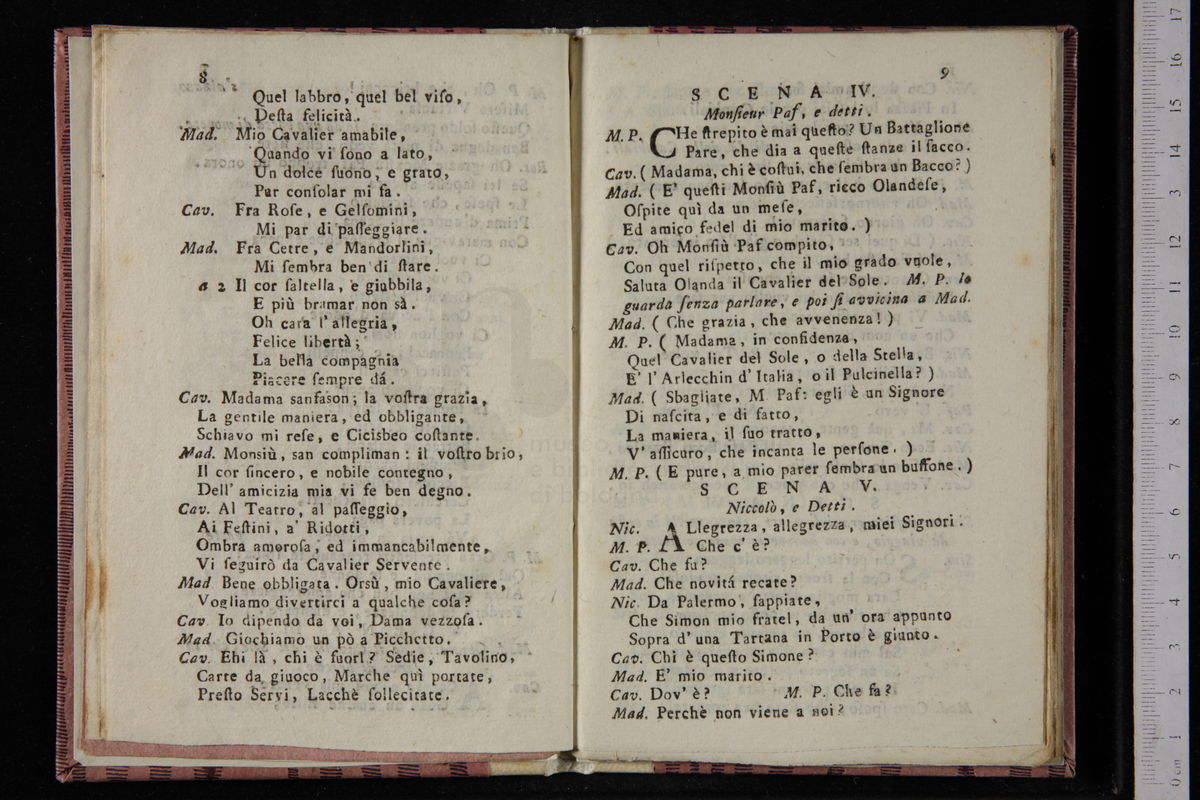 8
Quel labbro, quel bel viſo,
Deſta felicità.
Mad. Mio Cavalier amabile,
Quando vi ſono a lato,
Un dolce ſuono, e grato,
Par conſolar mi fa.
Cav. Fra Roſe, e Gelſomini,
Mi par di paſſeggiare.
Mad. Fra Cetre, e Mandorlini,
Mi ſembra ben di ſtare.
a 2 Il cor ſaltella, e giubbila,
E più bramar non sà.
Oh cara l'allegria,
Felice libertà;
La bella compagnia
Piacere ſempre dá.
Cav. Madama sanfason; la voſtra grazia,
La gentile maniera, ed obbligante,
Schiavo mi reſe, e Cicisbeo coſtante.
Mad. Monsiù, san compliman: il voſtro brio,
Il cor ſincero, e nobile contegno,
Dell' amicizia mia vi fe ben degno.
Cav. Al Teatro, al paſſeggio,
Ai Feſtini, a' Ridotti,
Ombra amoroſa, ed immancabilmente,
Vi ſeguirò da Cavalier Servente.
Mad. Bene obbligata. Orsù, mio Cavaliere,
Vogliamo divertirci a qualche coſa?
Cav. Io dipendo da voi, Dama vezzoſa.
Mad. Giochiamo un pò a Picchetto.
Cav. Ehi là, chi è fuorl? Sedie, Tavolino,
Carte da giuoco, Marche quì portate,
Preſto Servi, Lacchè ſollecitate.
9
SCENA IV.
Monſieur Paf, e detti.
M. P. CHe ſtrepito è mai queſto? Un Battaglione
Pare, che dia a queſte ſtanze il ſacco.
Cav. (Madama, chi è coſtui, che ſembra un Bacco?)
Mad. (E' queſti Monſiù Paf, ricco Olandeſe,
Oſpite quì da un meſe,
Ed amico fedel di mio marito.)
Cav. Oh Monſiù Paf compito,
Con quel riſpetto, che il mio grado vuole,
Saluta Olanda il Cavalier del Sole. M. P. lo
guarda ſenza parlare, e poi ſi avvicina a Mad.
Mad. (Che grazia, che avvenenza!)
M. P. (Madama, in confidenza,
Quel Cavalier del Sole, o della Stella,
E' l'Arlecchin d'Italia, o il Pulcinella?)
Mad. (Sbagliate, M Paf: egli è un Signore
Di naſcita, e di fatto,
La maniera, il ſuo tratto,
V' aſſicuro, che incanta le perſone.)
M. P. (E pure, a mio parer ſembra un buffone.)
SCENA V.
Niccolò, e Detti.
Nic. ALlegrezza, allegrezza, miei Signori.
M. P. Che c' è?
Cav. Che fu?
Mad. Che novitá recate?
Nic. Da Palermo, ſappiate,
Che Simon mio fratel, da un' ora appunto
Sopra d' una Tartana in Porto è giunto.
Cav. Chi è queſto Simone?
Mad. E' mio marito.
Cav. Dov' è? M. P. Che fa?
Mad. Perchè non viene a noi?